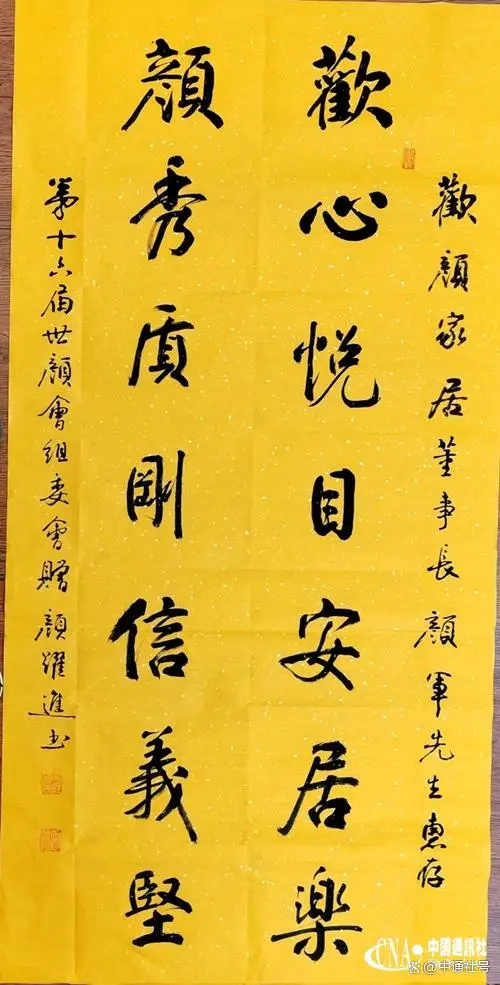 歡顏家居董事長顏軍先生惠存
歡心悅目安居樂
顏秀質剛信義堅
第十六屆世顏會組委會贈顏躍進书
CNA 中國通訊社
中通社号